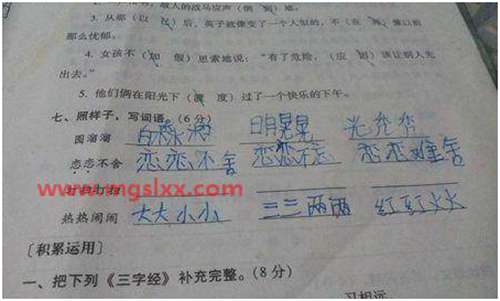 敌人的战马应声（倒 到）地。
3. 从那（以 已）后，英子就像变了一个人似的，不（在 再）像以前
那么忧郁。
4. 女孩不（加 假）思索地说：“有了危险，（应 因）该让别人先
出去。”
5. 他们俩在阳光下（渡 度）过了一个快乐的下午。
七、照样子，写词语。（6分）
圆溜溜 白 明晃晃 光秃秃
恋恋不舍 恋恋不忘 恋恋难舍
热热闹闹 大大小小 三三两两 红红火火
〔积累运用〕
一、把下列《三字经》补充完整。（8分）
习相远